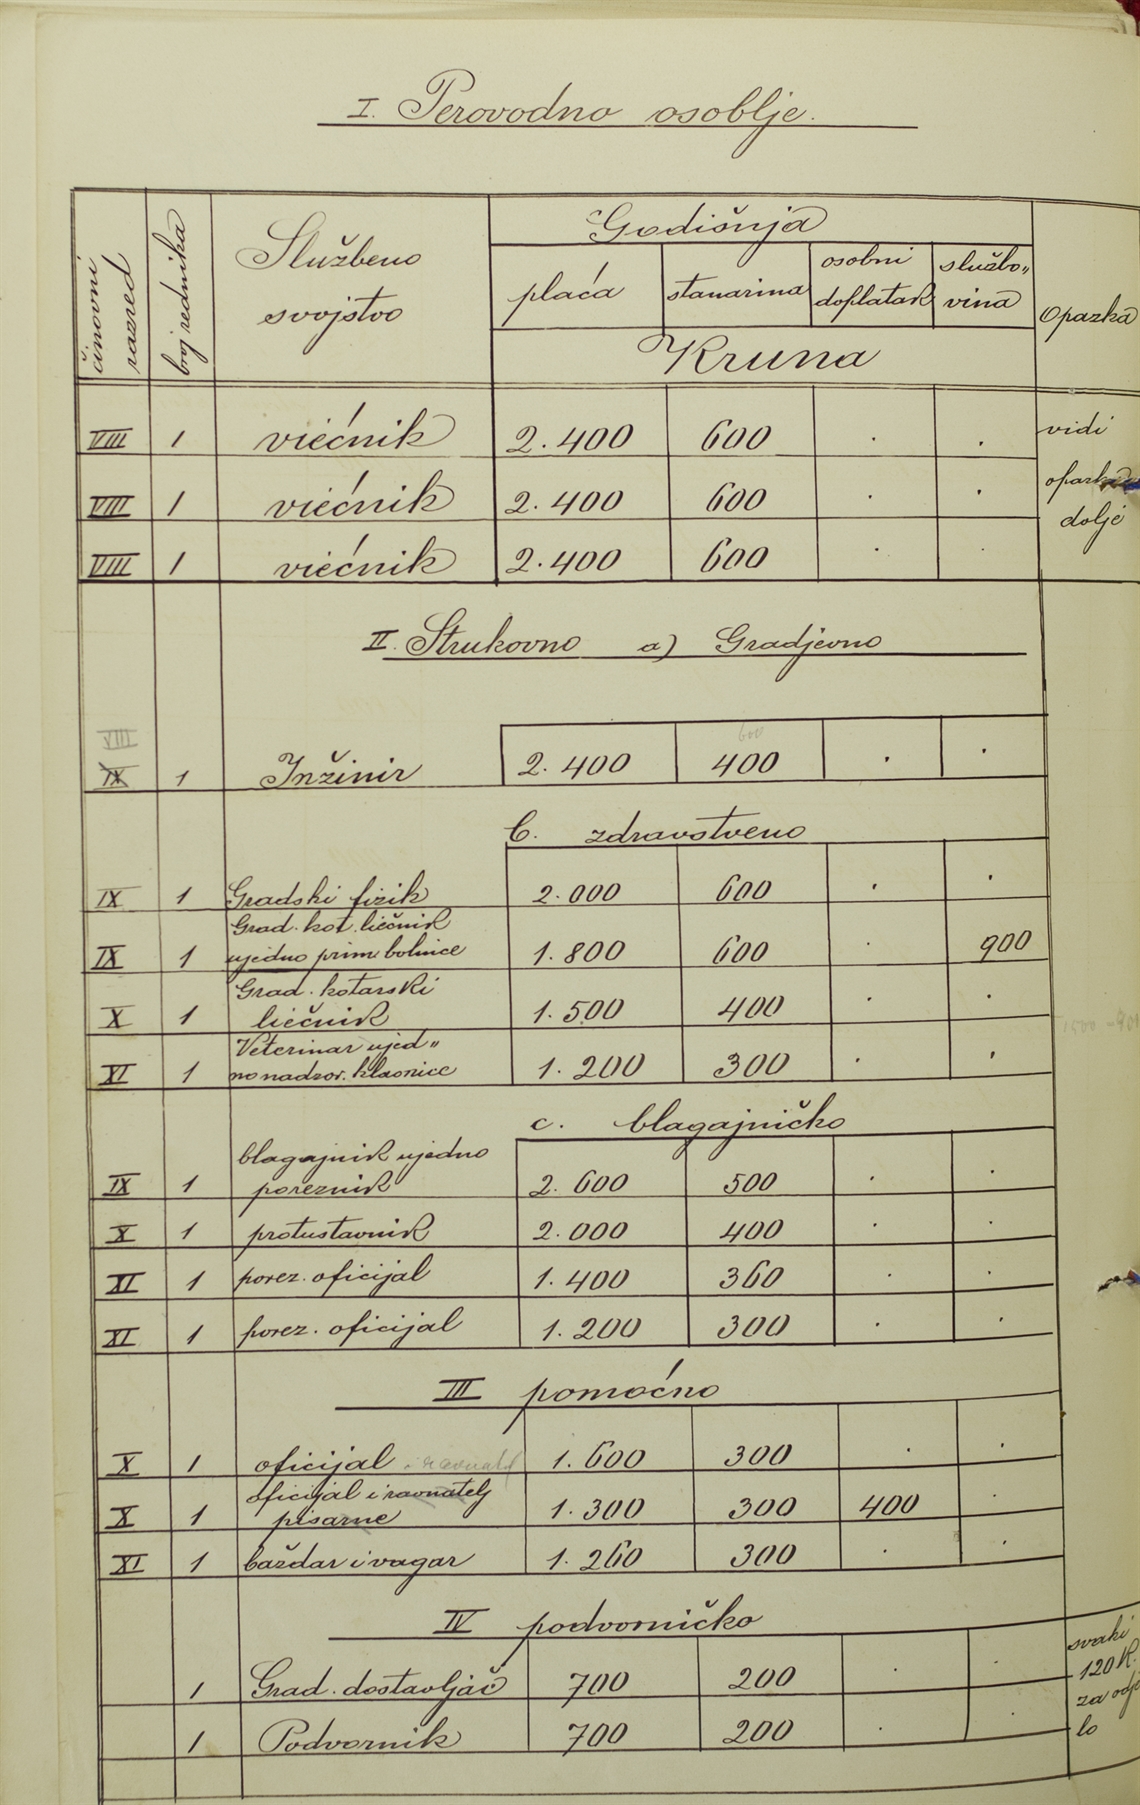 I. Perovodno osoblje.
činovni razred
broj rednika
Službeno svojstvo
Godišnja
plaća
stanarina
osobni doplatak
službo„ vina
Opazka
Kruna
VIII 1 viećnik 2.400 600 . . vidi
VIII 1 viećnik 2.400 600 . . opazka
VIII 1 viećnik 2.400 600 . . dolje
II. Strukovno a) Gradjevno
VIII 600
IX 1 Inžinir 2.400 400 . .
b. zdravstveno
IX 1 Gradski fizik 2.000 600 . .
Grad. kot. liečnik
IX 1 ujedno prim. bolnice 1.800 600 . 900
Grad. kotarski
X 1 liečnik 1.500 400 . .
Veterinar ujed„
XI 1 no nadzor. klaonice 1.200 300 . .
c. blagajničko
blagajnik ujedno
IX 1 poreznik 2.600 500 . .
X 1 protustavnik 2.000 400 . .
XI 1 porez. oficijal 1.400 360 . .
XI 1 porez. oficijal 1.200 300 . .
III pomoćno
X 1 oficijal i ravnatelj 1.600 300 . .
oficijal i ravnatelj
X 1 pisarne 1.300 300 400 .
XI 1 baždar i vagar 1.260 300 . .
IV podvorničko
svaki
1 Grad. dostavljač 700 200 . . 120 K.
za odje
1 Podvornik 700 200 . . lo